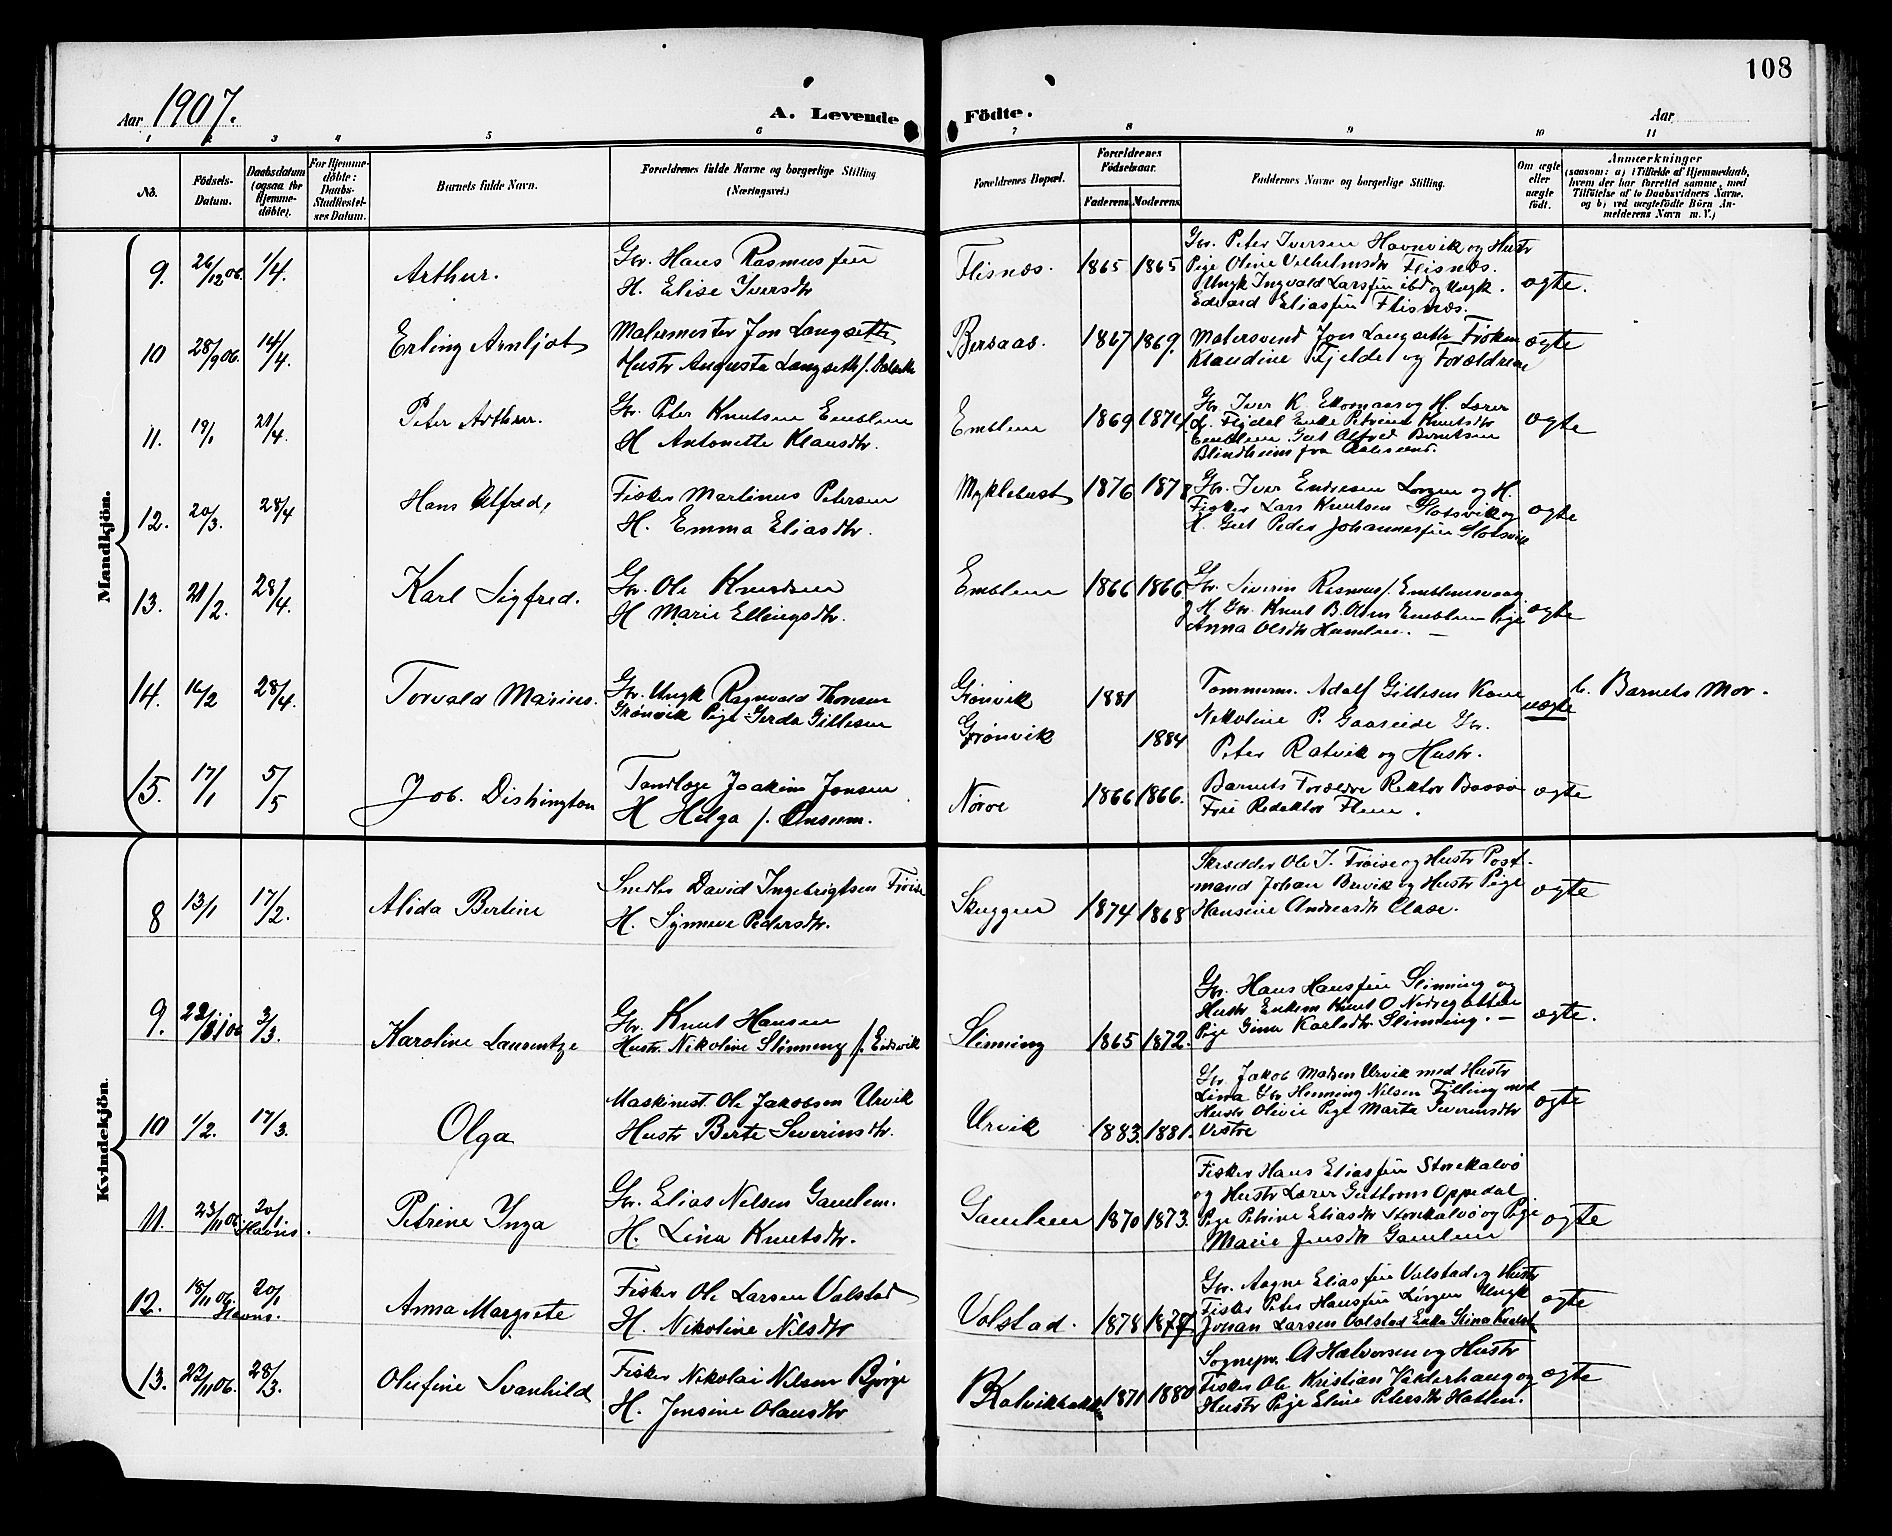 108
Aar 1907.
A. Levende Födte.
Aar
1 2 3 4 5 6 7 8 9 10 11
No.
Födsels-Datum.
Daabsdatum (ogsaa for Hjemmedöbte).
For Hjemmedöbte: Daabs-Stadfæstelses Datum.
Barnets fulde Navn.
Forældrenes fulde Navne og borgerlige Stilling (Næringsvei.)
Forældrenes Bopæl.
Forældrenes Födselsaar.
Faderens. Moderens.
Faddernes Navne og borgerlige Stilling.
Om ægte eller uægte födt.
Anmærkninger
(saasom: a) i Tilfælde af Hjemmedaab, hvem der har forrettet samme, med Tilföielse af to Daabsvidners Navne, og b) ved uægtefödte Börn Anmelderens Navn m. V.)
Mandkjön.
9. 26/12 06. 1/4. Arthur. Gbr. Hans Rasmussen
H. Elise Iversdtr Flisnes. 1865 1865
Gbr. Peter Iversen Havnvik og Hustr
Pige Oline Vilhelmsdtr Flisnes.
Ungk Ingvald Larssen ibd og Ungk.
Edvard Eliassen Flisnes. ægte.
10 28/9 06. 14/4. Erling Arnljot Malermester Jon Langseth
Hustr Augusta Langseth f. Bersaas. 1867 1869.
Malersvend Jon Langseth Frøken
Klaudine Fjelde og Forældrene ægte
11. 19/1 21/4. Peter Arthur. Gbr. Peter Knutsen Emblem
H Antonette Klausdtr. Emblem 1869 1874
Gbr. Iver K. Ekornaas og H. Lærer
Enke Petrine Knutsdtr
Emblem Gut Alfred Berntsen
Blindheim fra Aalesund. ægte
12. 20/3. 28/4 Hans Alfred, Fisker Martinus Petersen
H. Emma Eliasdtr. Myklebust 1876 1878
Gbr. Iver Endresen Lorgen og H.
Fisker Lars Knutsen Slotsvik og
H. Gut Peder Johannessen Slotsvik ægte
13. 21/2. 28/4. Karl Sigfred. Gbr. Ole Knudsen
H Marie Ellingsdtr. Emblem 1866 1866.
Gbr. Severin Rasmus. Emblemsvaag
og H. Gbr. Knut B. Olsen Emblem Pige
Anna Olsdtr Humlen. — ægte
14. 16/2 28/4. Torvald Marius. Gbr. Ungk Ragnvald Thorsen
Grønvik Pige Gerda Gillesen Grønvik 1881
Grønvik 1884
Tømmerm. Adolf Gillesen Kone
Nikoline P. Gaaseide Gbr.
Peter Ratvik og Hustr. uægte b. Barnets Mor.
15. 17/1 5/5 Job. Dishington Tandlæge Joakim Jonsen
H Helga f. Onsum. Nørve 1866 1866.
Barnets Forældre Rektor Bassø
Frue Redaktør Flem. ægte
Kvindekjön.
8 13/1 17/2. Alida Bertine Snedker David Ingebrigtsen Frøise
H. Synneve Pedersdtr. Skuggen 1874 1868
Skrædder Ole I. Frøise og Hustr Post-
mand Johan Brevik og Hustr Pige
Hansine Andreasdtr Aase. ægte
9. 22/11 06 3/3. Karoline Laurentze Gbr. Knut Hansen
Hustr. Nikoline Slinning f. Eidsvik Slinning 1865 1872.
Gbr. Hans Hanssen Slinning og
Hustr Enkem Knut O Nedregotten
Pige Gina Karlsdtr Slinning. — ægte.
10 1/2. 17/3. Olga Maskinist Ole Jakobsen Urvik
Hustr Berte Severinsdtr. Urvik 1883. 1881.
Gbr. Jakob Madsen Urvik med Hustr
Lina Gbr Henning Nilsen Fylling med
Hustr Olivie Pige Marta Severinsdtr
Vestre ægte
11. 23/11 06 20/1 Havns. Petrine Inga Gbr. Elias Nilsen Gamlem.
H. Lina Knutsdtr. Gamlem 1870 1873.
Fisker Hans Eliassen Storekalvø
og Hustr Lærer Guttorm Oppedal
Pige Petrine Eliasdtr Storekalvø og Pige
Marie Jensdtr Gamlem ægte
12. 18/11 06. Havns. 20/1 Anna Margrete Fisker Ole Larsen Valstad
H. Nikoline Nilsdtr Valstad. 1878 1877
Gbr. Aagne Eliassen Valstad og Hustr
Fisker Peter Hanssen Lorgen Ungk
Johan Larsen Valstad Enke Stina
ægte
13. 22/11 06. 28/3. Olufine Svanhild Fisker Nikolai Nilsen Bjørge
H. Jensine Olausdtr Kalvikbakken 1871 1880
Sognepr. A Halvorsen og Hustr
Fisker Ole Kristian Vedderhaug og
Hustr Pige Eline Petersdtr Hatlen. ægte